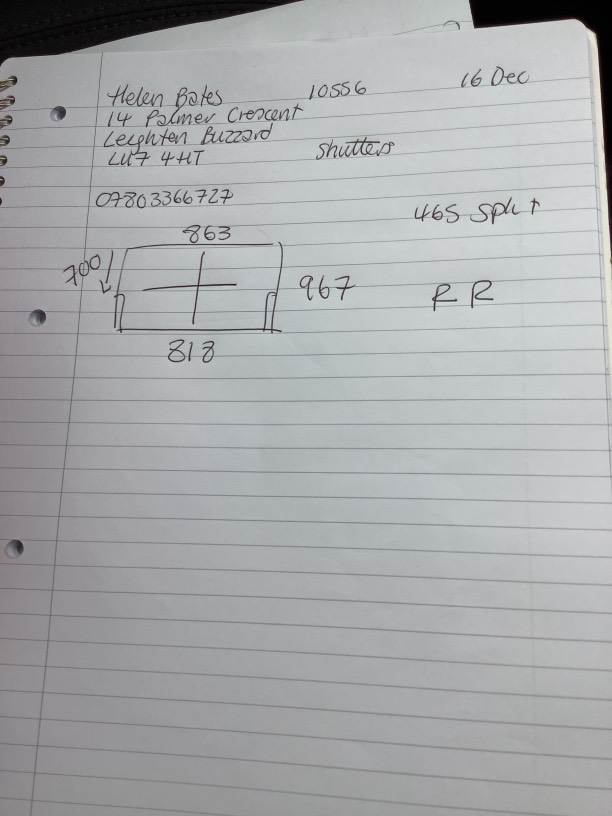 Helen Bates 10556 16 Dec
14 Palmer Crescent
Leighten Buzzard
LU7 4HT Shutters
07803366727
465 Split
863
700
967
R R
818